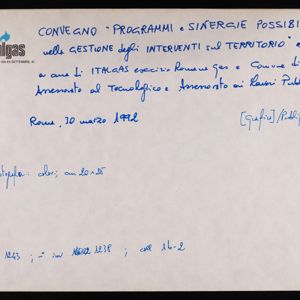 algas
CONVEGNO "PROGRAMMI e SINERGIE POSSIBI
nella GESTIONE degli INTERVENTI sul TERRITORIO"
a cura di ITALGAS esercizio Romana gas e Comune di
Assessorato al Tecnologico e Assessorato ai Lavori Pubbl
Roma, 30 marzo 1992
[Grafica]/Pubbli
colori; cm 20x25
1293 ; inv 1238 ; coll 16-2